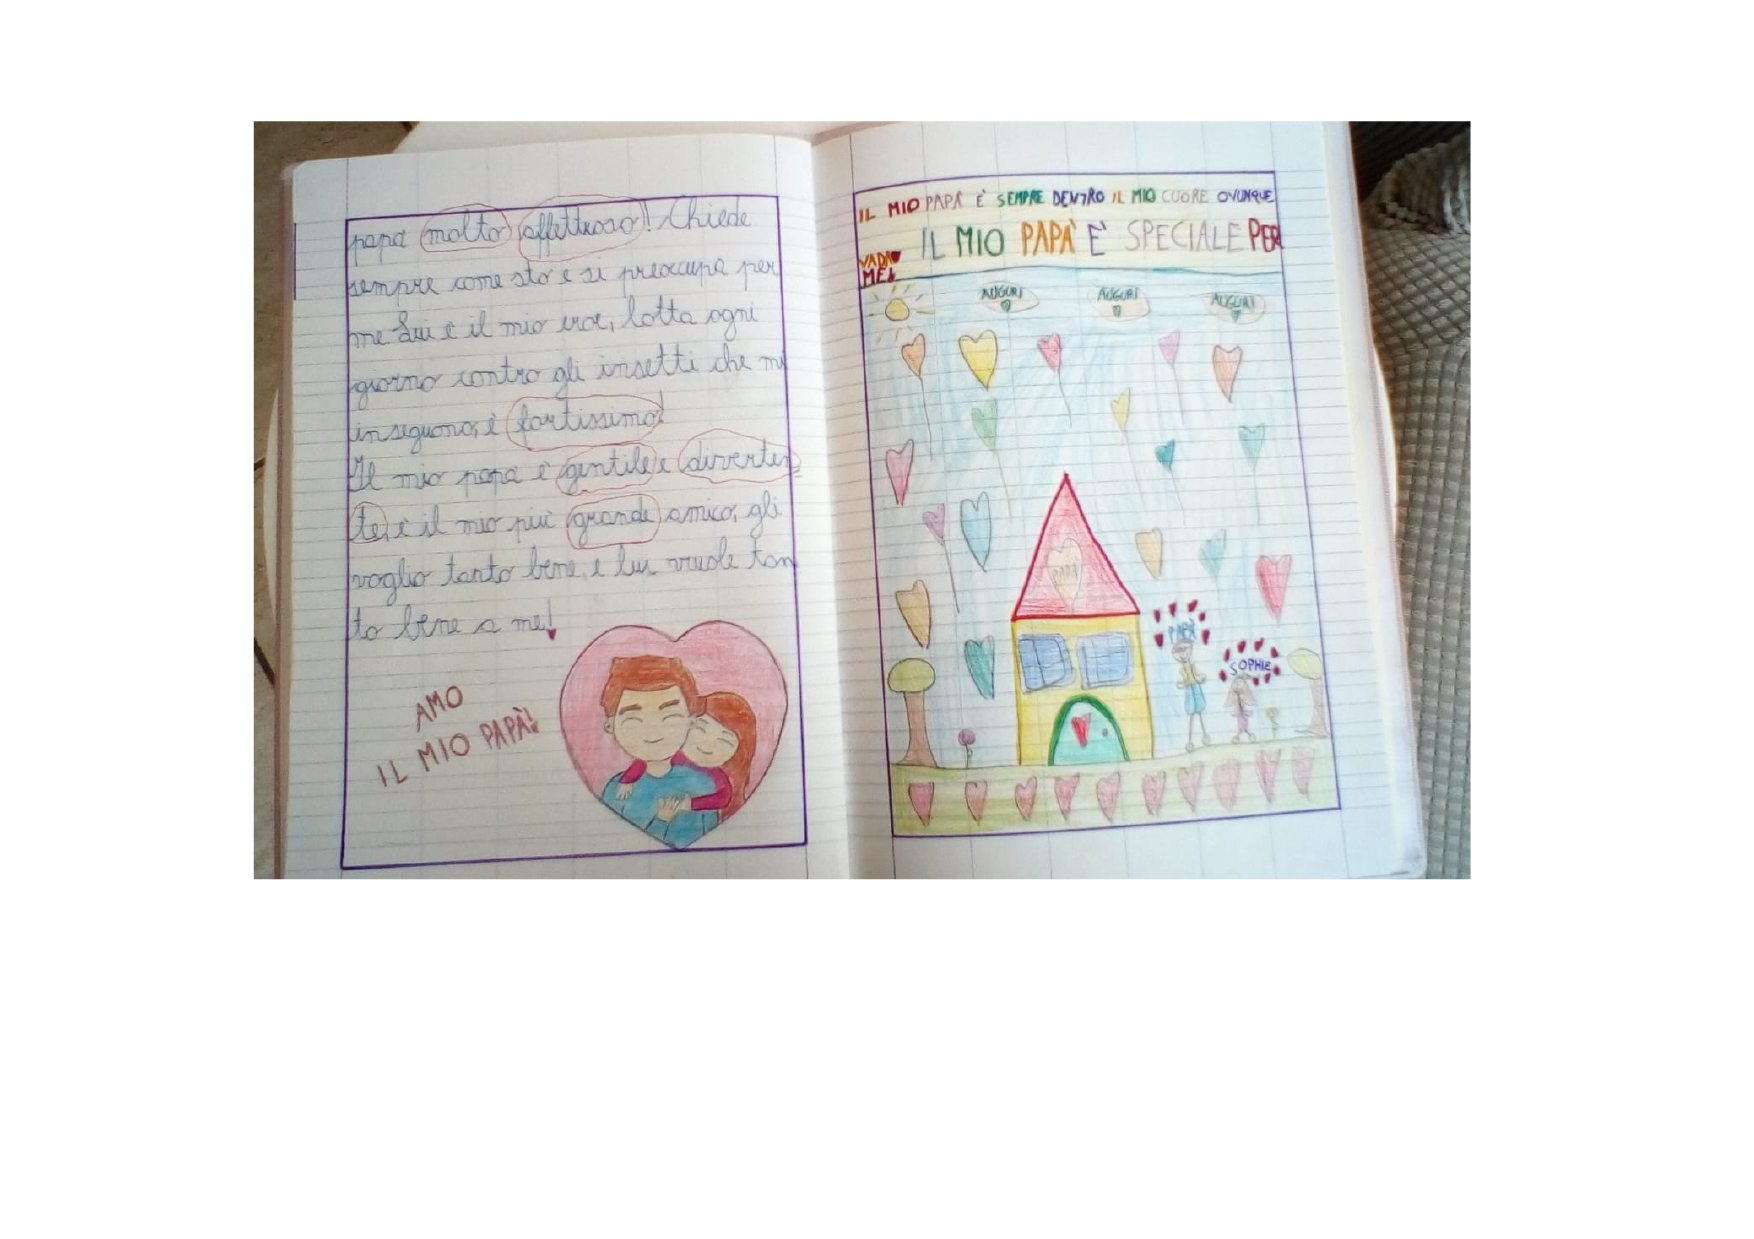 papà molto affettuoso! Chiede
sempre come sto e si preoccupa per
me Lui è il mio eroe, lotta ogni
giorno contro gli insetti che mi
inseguono, è fortissimo!
Il mio papà è gentile e diverten
te, è il mio più grande amico, gli
voglio tanto bene, e lui vuole tan
to bene a me!
AMO
IL MIO PAPÀ!
IL MIO PAPÀ È SEMPRE DENTRO IL MIO CUORE OVUNQUE
VADA
IL MIO PAPÀ È SPECIALE PER
ME!
AUGURI AUGURI AUGURI
PAPÀ
PAPÀ
SOPHIE